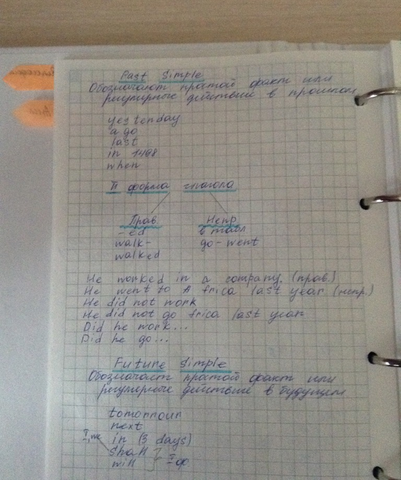 Past Simple
Обозначают простой факт или
регулярные действия в прошлом
yesterday
ago
last
in 1498
when
II форма глагола
Прав. Непр
-ed в табл
walk- go-went
walked
He worked in a company. (прав.)
He went to Africa last year. (непр)
He did not work
He did not go frica last year
Did he work...
Did he go...
Future Simple
Обозначают простой факт или
регулярные действия в будущем
tomorrow
next
in (5 days)
I, we shall
will I ф